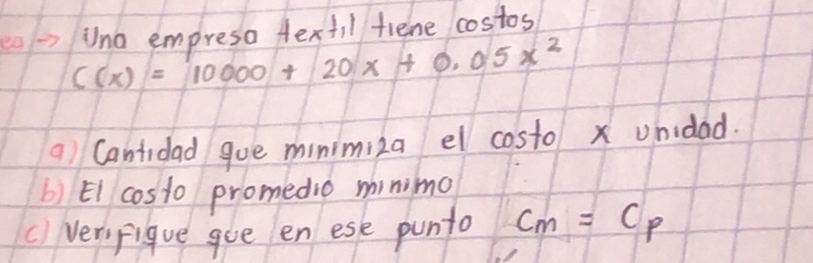 ea → Una empresa textil tiene costos
C(x) = 10000 + 20x + 0.05x²
a) Cantidad que minimiza el costo x unidad.
b) El costo promedio minimo
c) Verifique que en ese punto Cm = Cp